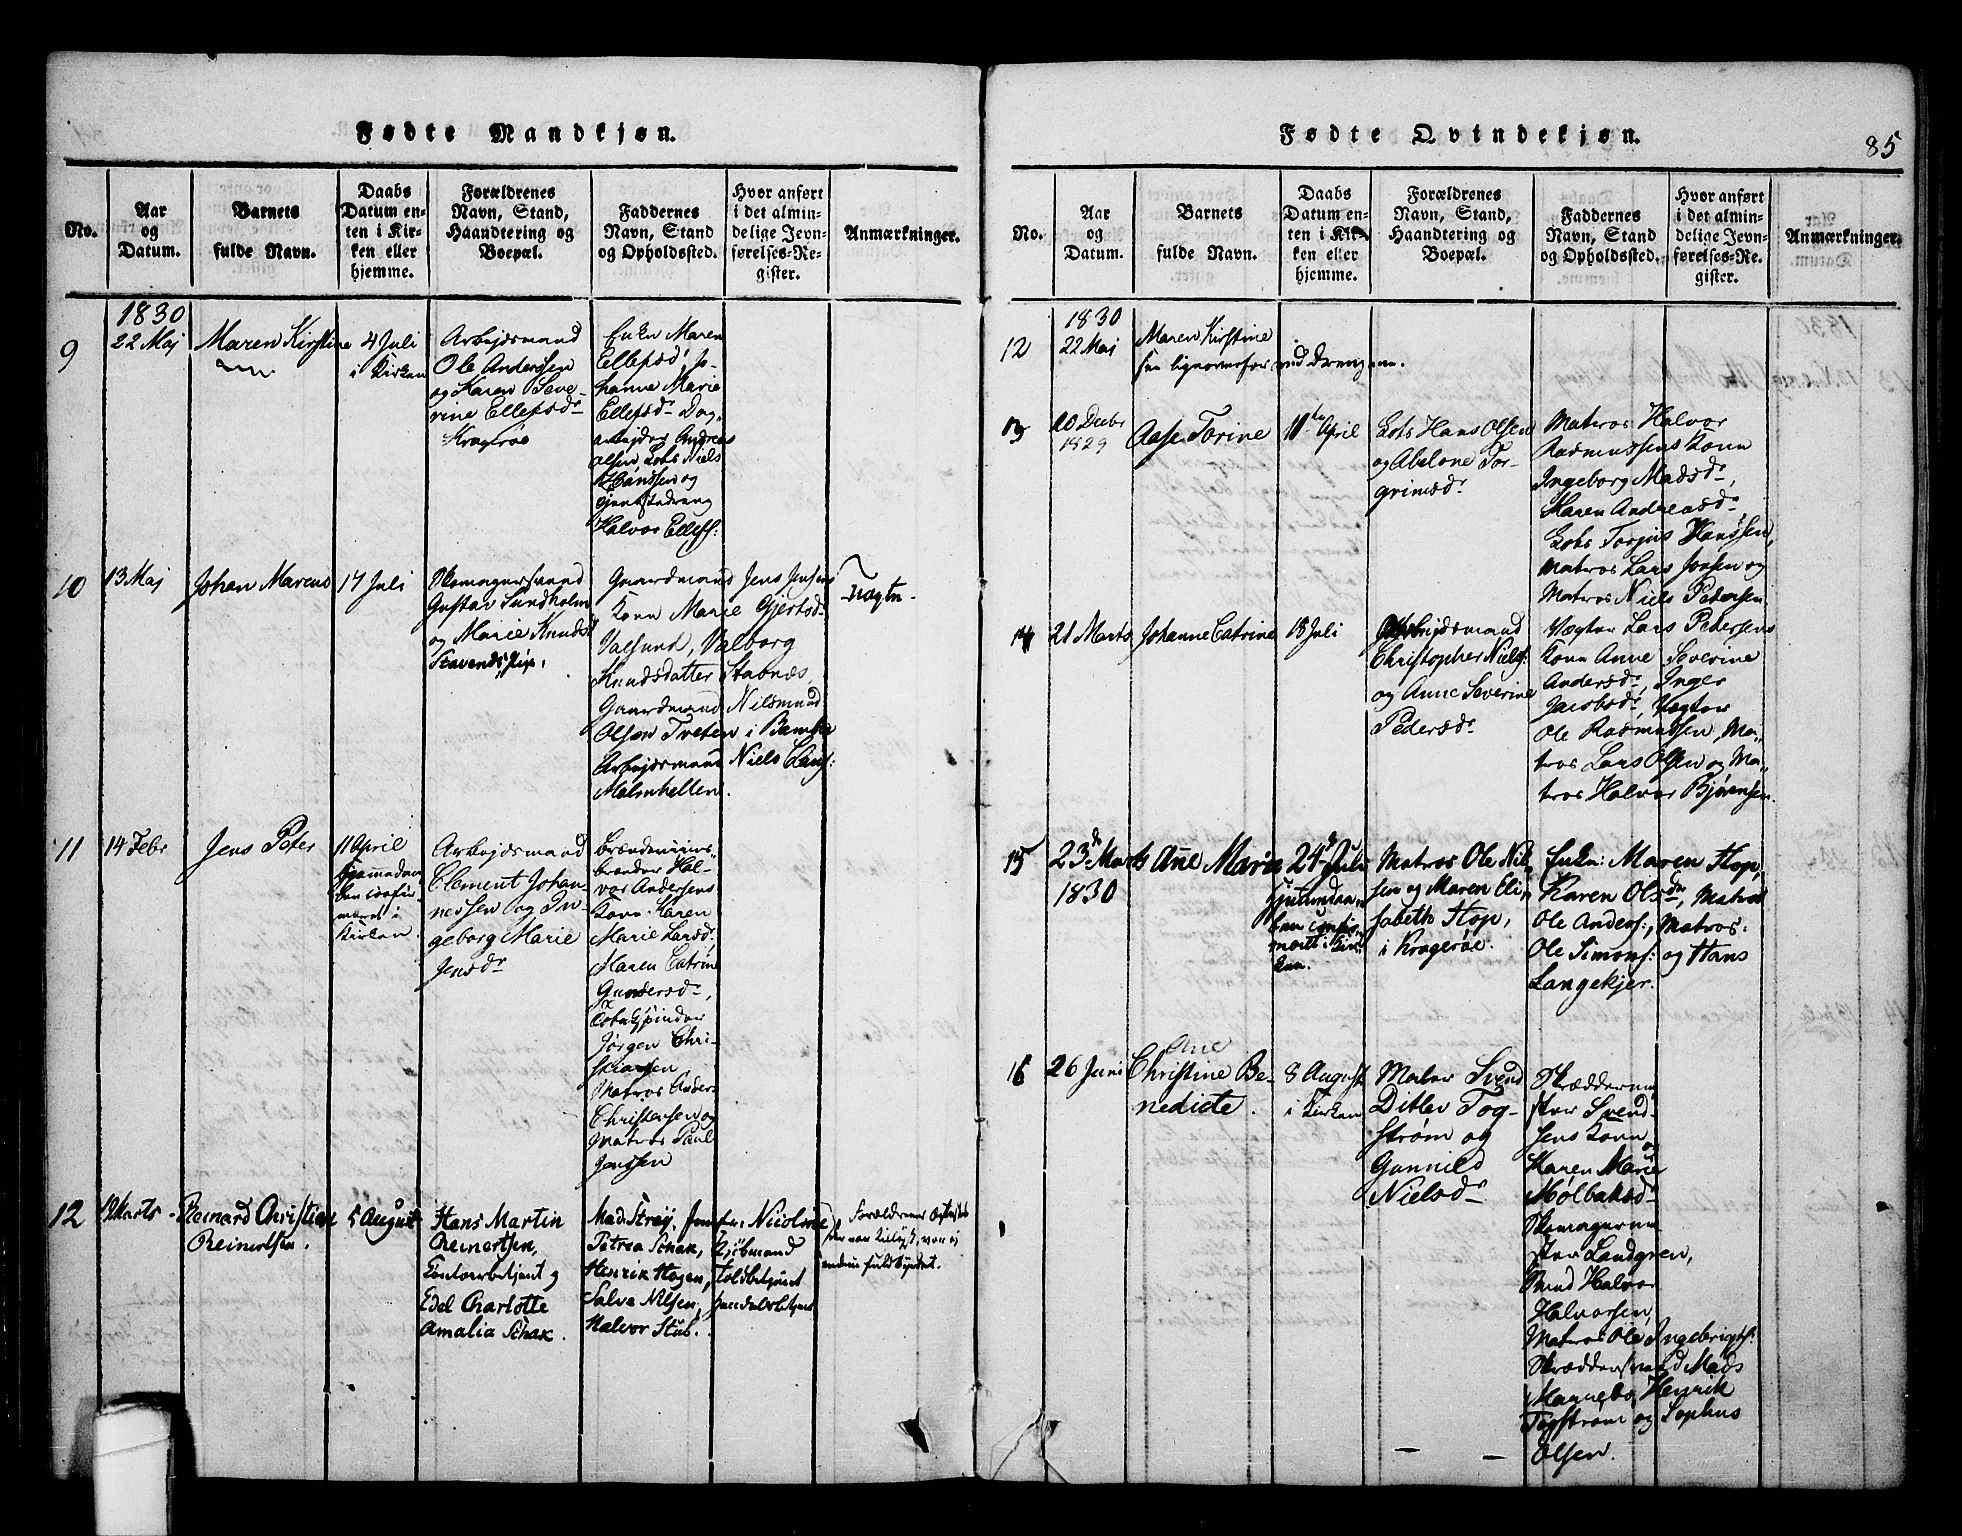 Fødte Mandkjøn.
No.
Aar
og
Datum.
Barnets
fulde Navn.
Daabs
Datum en-
ten i Kir-
ken eller
hjemme.
Forældrenes
Navn, Stand,
Haandtering og
Boepæl.
Faddernes
Navn, Stand
og Opholdssted.
Hvor anført
i det almin-
delige Jevn-
førelses-Re-
gister.
Anmærkninger.
1830
9
22 Maj
Maren Kirstine
4 Juli
i Kirken
Arbejdsmand
Ole Andersen
og Karen Seve-
rine Ellefsdr
Kragerøe
Enken Maren
Ellefsd, Jo-
hanne Marie
Ellefsdr Dag-
arbejder Andreas
Olsen, Lods Niels
Hanssen og
Halvor Ellefs:
10
13 Maj
Johan Marcus
17 Juli
Skomagersvend
Gustav Sundholm
og Marie Knudsd
Gaardmand Jens Jensens
Kone Marie Gjertsd.
Valsund, Valborg
Knudsdatter Stabnæs,
Gaardmand Nilsmund
Olsen Tveten i Bamble
Arbejdsmand Niels Claus:
Malmhellen.
Uægte.
11
14 Febr
Jens Peter
11 April
Kirken.
Arbejdsmand
Clement Johan-
nessen og In-
geborg Marie
Jensdr
Brændeviins-
brænder Hal-
vor Andersens
Kone Karen
Marie Larsd.
Maren Catrine
Gundersdr,
Jørgen Chri-
stiansen
Matros Anders
Christensen og
Matros Paul
Jenssen
12
Marts
Reinard Christian
Reinertsen.
5 August
Hans Martin
Reinertsen,
Contoirbetjent og
Edel Charlotte
Amalia Schak.
Mad Strøy, Jomfr: Nicoline
Petrea Schak, Kjøbmand
Henrik Hagen, Toldbetjent
Salve Nilsen, Handelsbetjent
Halvor Stub.
Forældrenes Ægteskab
endnu fuldbyrdet.
Fødte Qvindekjøn.
85
No.
Aar
og
Datum.
Barnets
fulde Navn.
Daabs
Datum en-
ten i Kir-
ken eller
hjemme.
Forældrenes
Navn, Stand,
Haandtering og
Boepæl.
Faddernes
Navn, Stand
og Opholdssted.
Hvor anført
i det almin-
delige Jevn-
førelses-Re-
gister.
Anmærkninger.
1830
12
22 Maj
Maren Kirstine
see ligeoverfor ved Drengene.
13
20 Decbr
1829
Aase Torine
11te April
Lots Hans Olsen
og Abelone Tor-
grimsdr
Matros Halvor
Rasmussens Kone
Ingeborg Madsdr,
Karen Andreasdr,
Lots Torjus Hanssen,
Matros Lars Jonsen og
Matros Niels Pedersen.
14
21 Marts
Johanne Catrine
18 Juli
Arbejdsmand
Christopher Niels:
og Anne Severine
Pedersdr
Vægter Lars Pedersens
Kone Anne Severine
Andersdr, Inger
Jacobsdr, Vægter
Ole Rasmussen, Ma-
tros Lars Olsen og Ma-
tros Halvor Bjørensen.
15
23de Marts
1830
Ane Marie
24de Juli
hjemmedaa-
ben confir-
meret i Kir-
ken
Matros Ole Nil-
sen og Maren Eli-
sabeth Stop,
i Kragerøe.
Enken: Maren Stop,
Karen Olsdr, Matros
Ole Anders:, Matros:
Ole Simons: og Hans
Langekjer.
16
26 Juni
Ane
Christine Be-
nedicte.
8 August
i Kirken
Maler Svend
Ditlev Tog-
strøm og
Gunnild
Nielsdr
Skrædderme-
ster Svend-
sens Kone og
Karen Marie
Mølbaksdr
Skomagerme-
ster Landgren,
Svend Halvor
Halvorsen,
Matros Ole Ingebrigts:
Skræddersvend Mads
Mannebo, Henrik
Togstrøm og Sophus
Olsen.